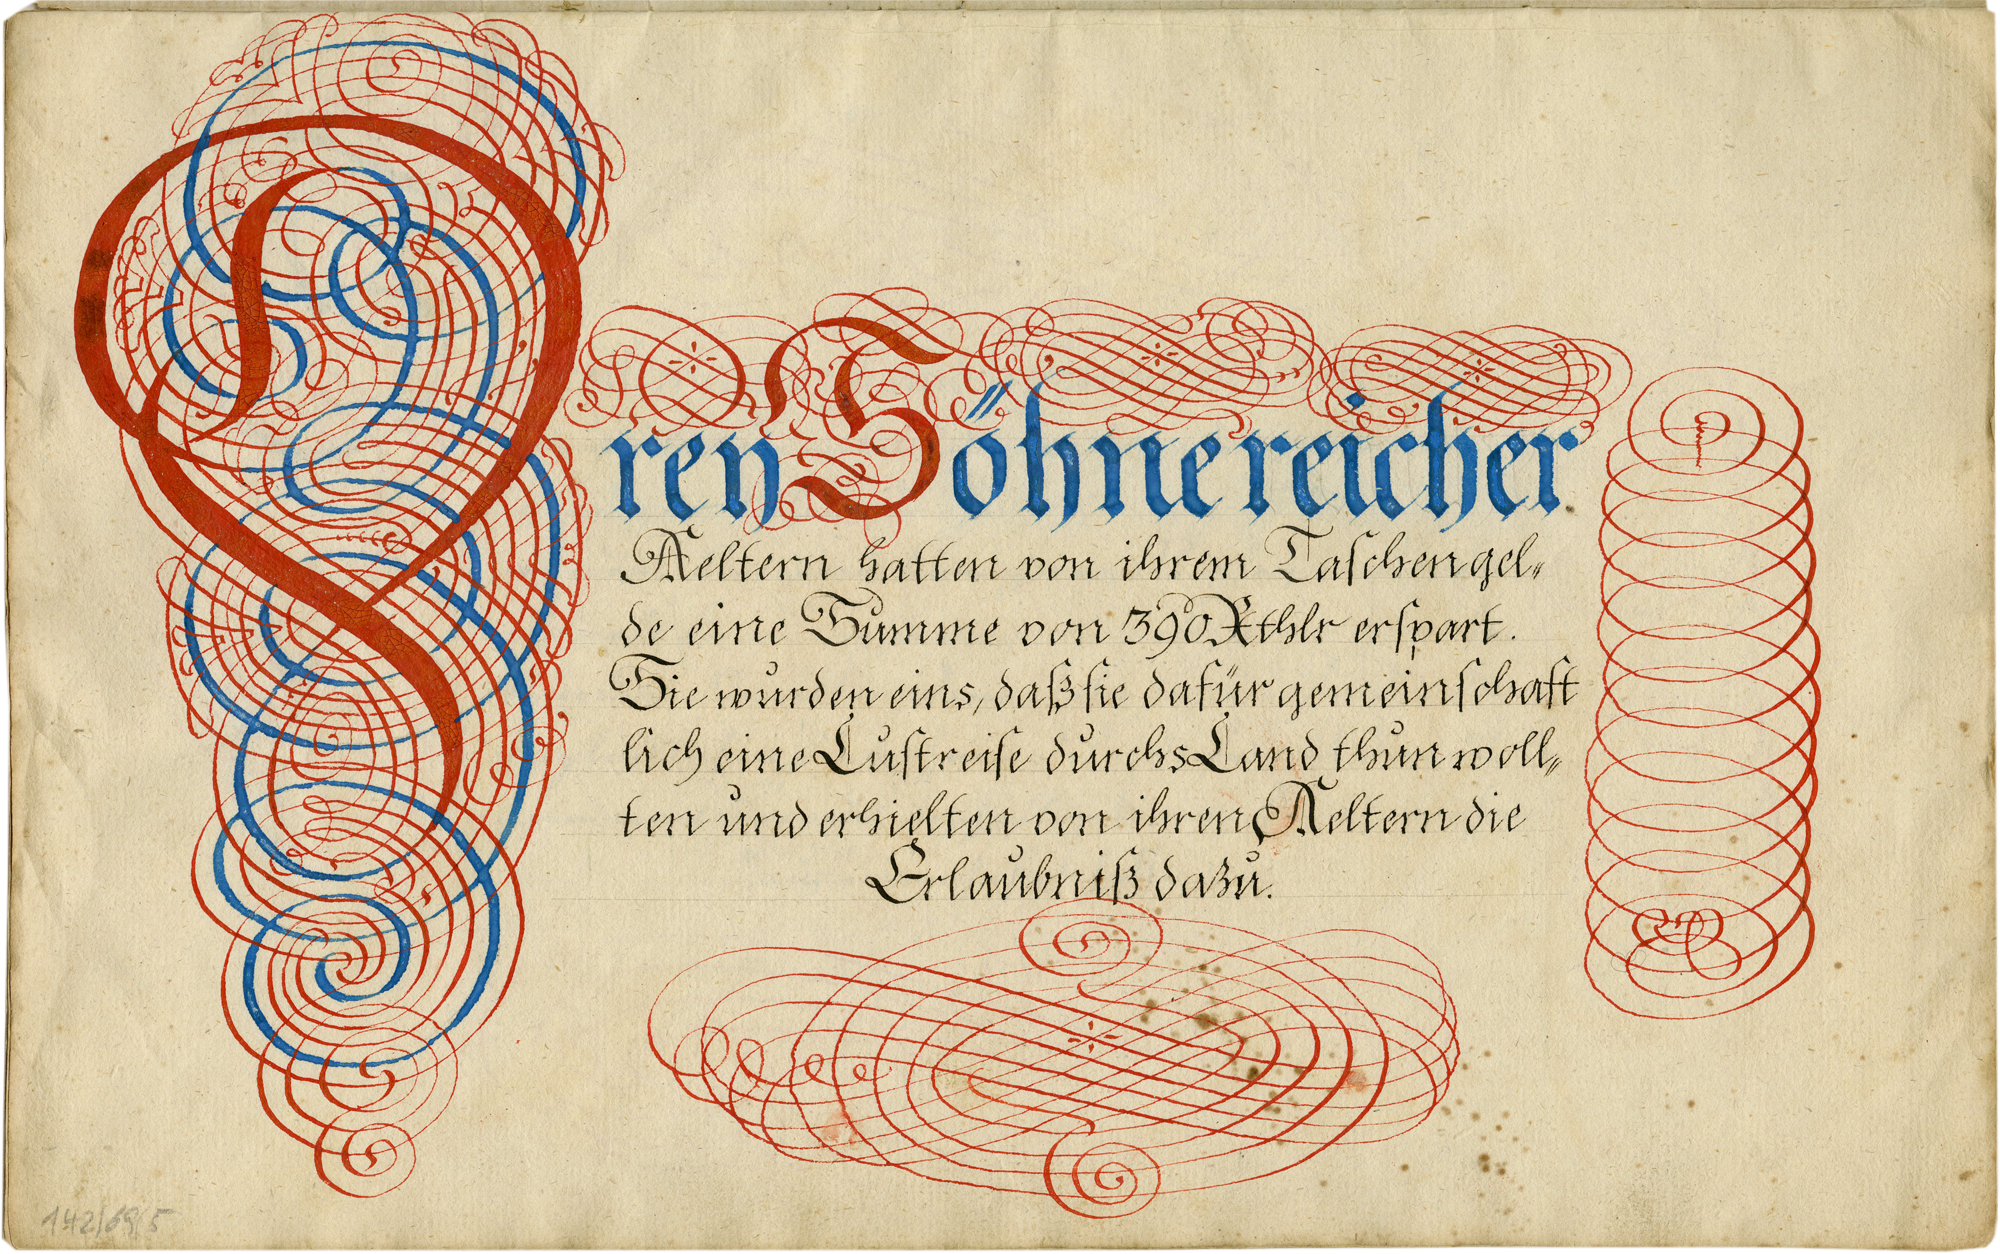 Drey Söhne reicher
Aeltern hatten von ihrem Taschengel=
de eine Summe von 390 Rthlr erspart.
Sie wurden eins, daß sie dafür gemeinschaft
lich eine Lustreise durchs Land thun woll=
ten und erhielten von ihren Aeltern die
Erlaubniß dazu.
142/69/5